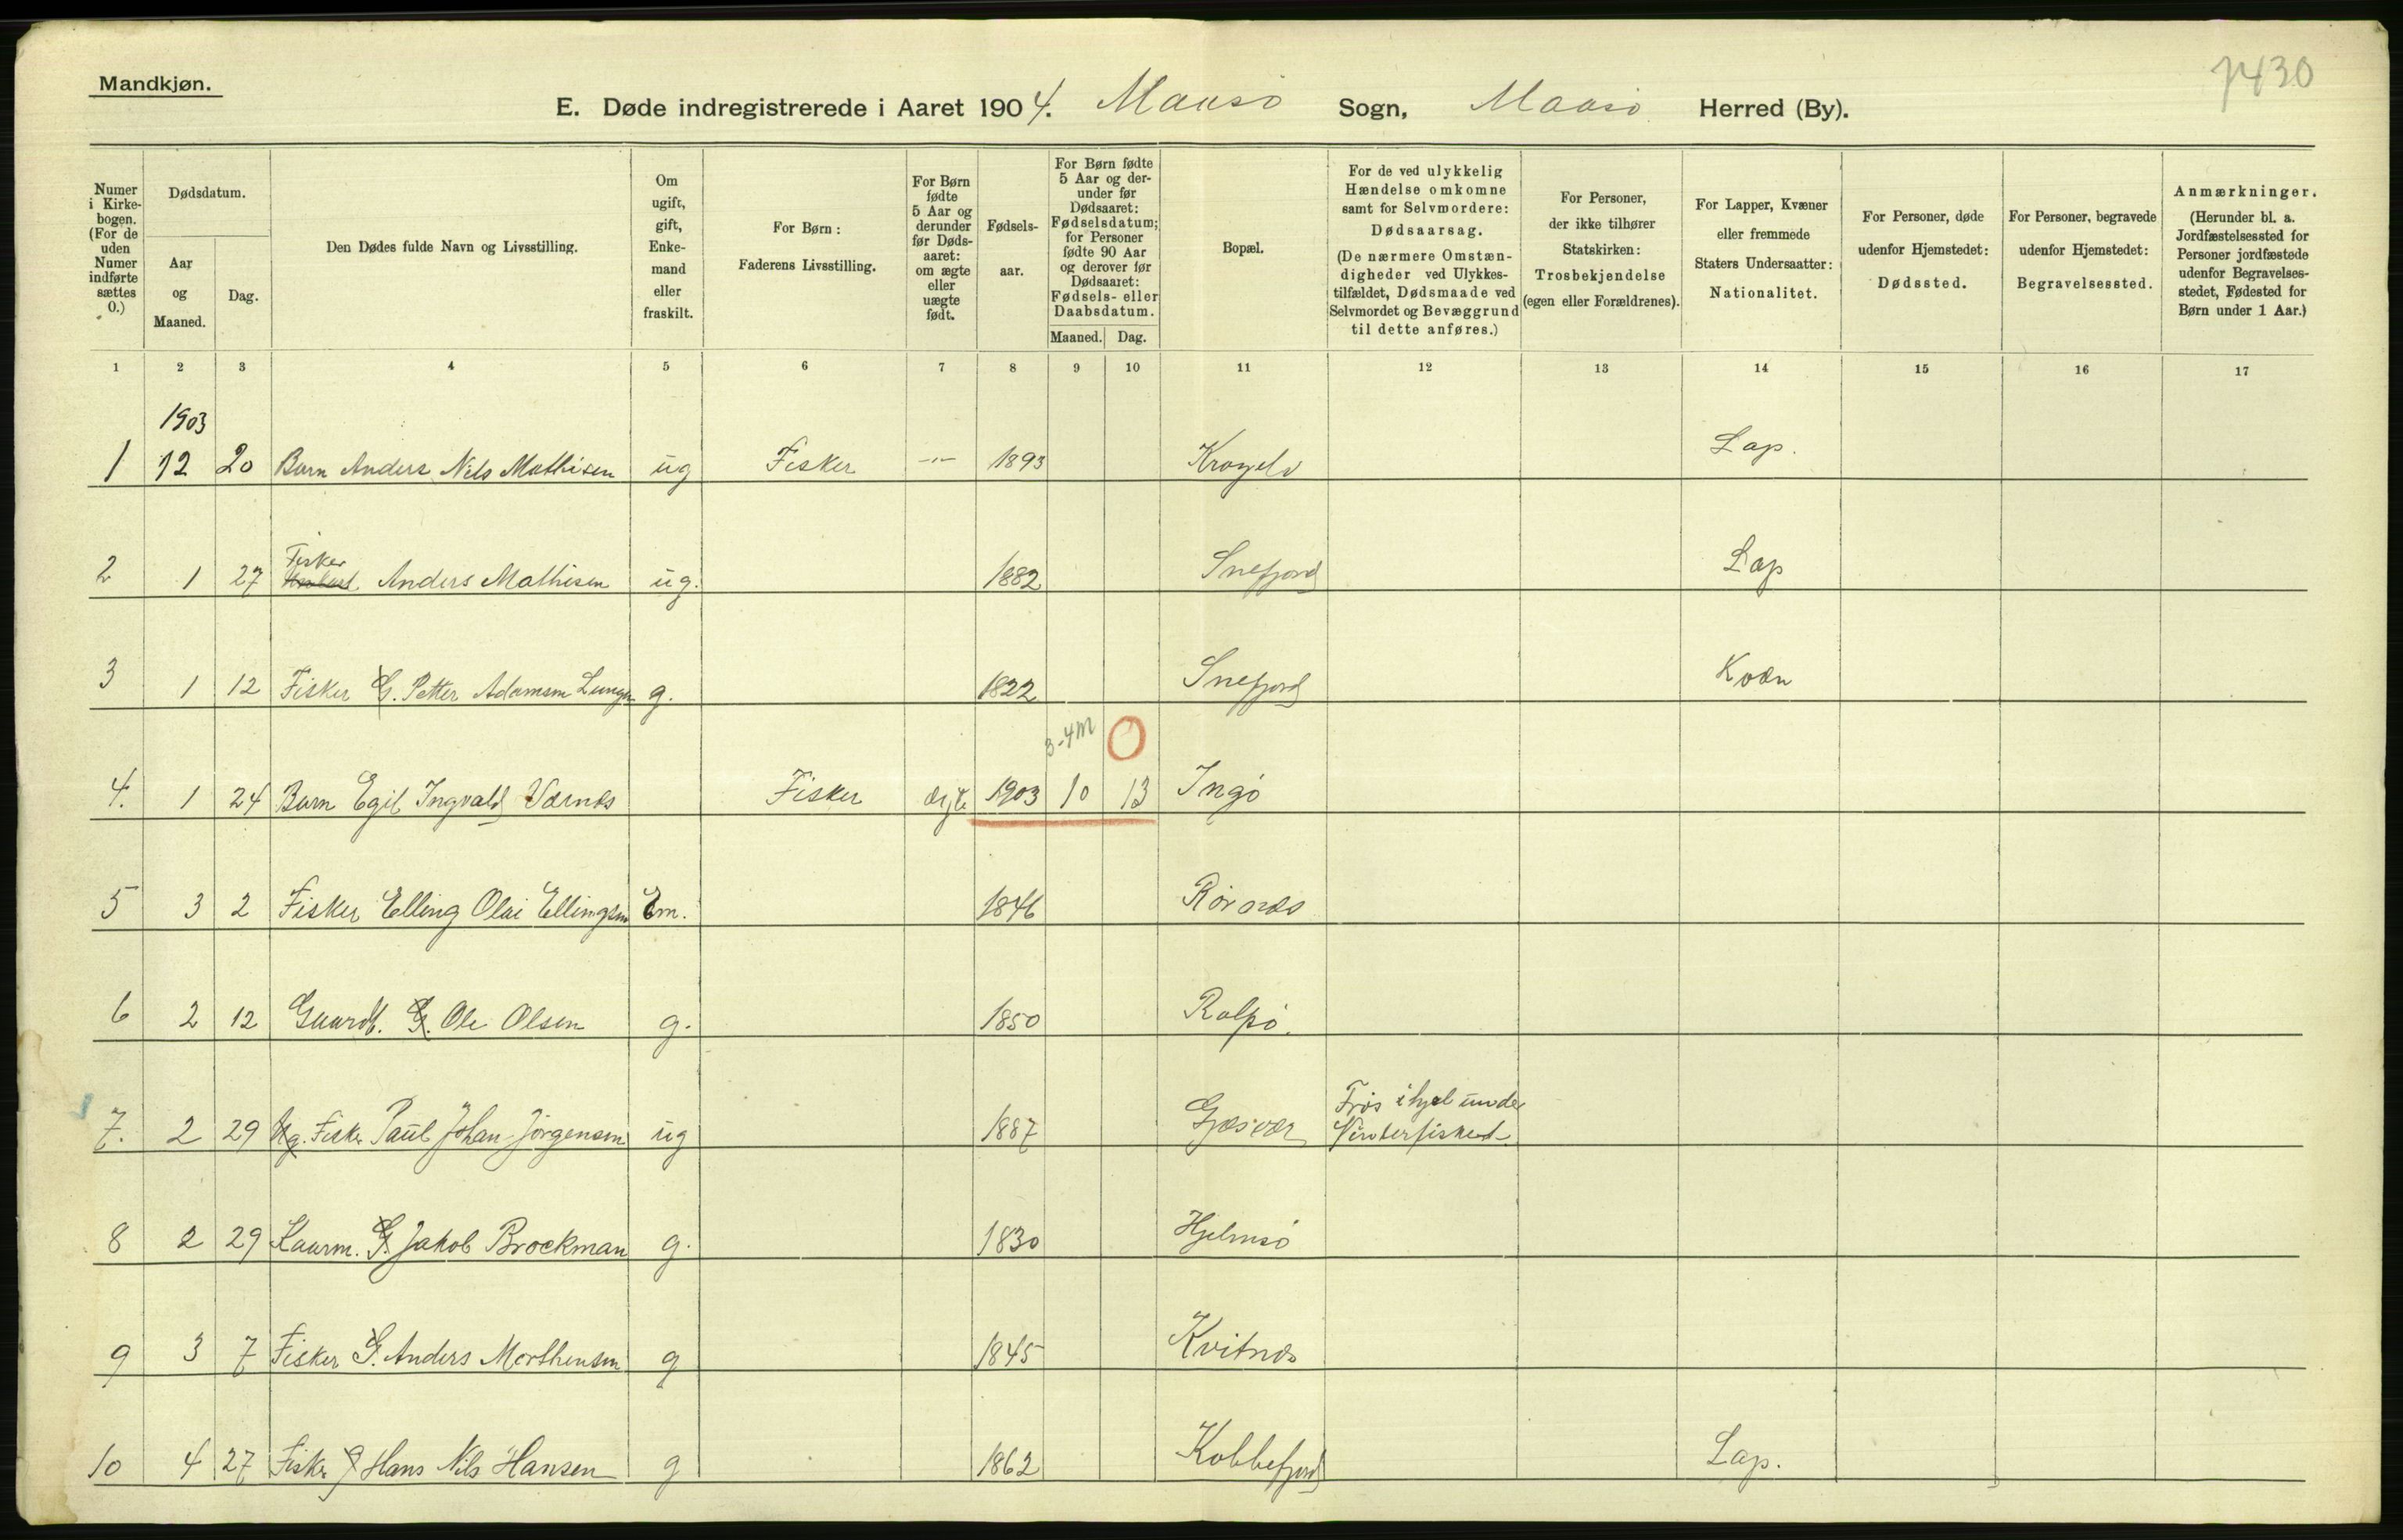 Mandkjøn.
7430
E. Døde indregistrerede i Aaret 1904. Maasø Sogn, Maasø Herred (By).
Numer i Kirke-bogen. (For de uden Numer indførte sættes O.)
Dødsdatum.
Aar og Maaned.
Dag.
Den Dødes fulde Navn og Livsstilling.
Om ugift, gift, Enke-mand eller fraskilt.
For Børn: Faderens Livsstilling.
For Børn fødte 5 Aar og derunder før Døds-aaret: om ægte eller uægte født.
Fødsels-aar.
For Børn fødte 5 Aar og der-under før Dødsaaret: Fødselsdatum; for Personer fødte 90 Aar og derover før Dødsaaret: Fødsels- eller Daabsdatum.
Maaned. Dag.
Bopæl.
For de ved ulykkelig Hændelse omkomne samt for Selvmordere: Dødsaarsag. (De nærmere Omstæn-digheder ved Ulykkes-tilfældet, Dødsmaade ved Selvmordet og Bevæggrund til dette anføres.)
For Personer, der ikke tilhører Statskirken: Trosbekjendelse (egen eller Forældrenes).
For Lapper, Kvæner eller fremmede Staters Undersaatter: Nationalitet.
For Personer, døde udenfor Hjemstedet: Dødssted.
For Personer, begravede udenfor Hjemstedet: Begravelsessted.
Anmærkninger. (Herunder bl. a. Jordfæstelsessted for Personer jordfæstede udenfor Begravelses-stedet, Fødested for Børn under 1 Aar.)
1 2 3 4 5 6 7 8 9 10 11 12 13 14 15 16 17
1903
1 12 20 Barn Anders Nils Mathisen ug Fisker -"- 1893 Lap.
Fisker
2 1 27 Anders Mathisen ug. 1882 Snefjord Lap
3 1 12 Fisker G. Petter Adamsen g. 1822 Snefjord Kvæn
3-4 M O
4. 1 24 Barn Egil Ingvald Værnes Fisker ægte 1903 10 13 Ingø
5 3 2 Fisker Elling Olai Ellingsen Em. 1846 Rørnæs
6 2 12 Gaardb. G. Ole Olsen g. 1850 Rolfsø.
Frøs ihjel under
7. 2 29 Ug. Fisker Paul Johan Jørgensen ug 1887 Gjæsvær Vinterfisket.
8 2 29 Kaarm. G. Jakob Brockman g. 1830 Hjelmsø
9 3 7 Fisker G. Anders Morthensen g 1845 Kvitnæs
10 4 27 Fisker g Hans Nils Hansen g 1862 Kobbefjord Lap.